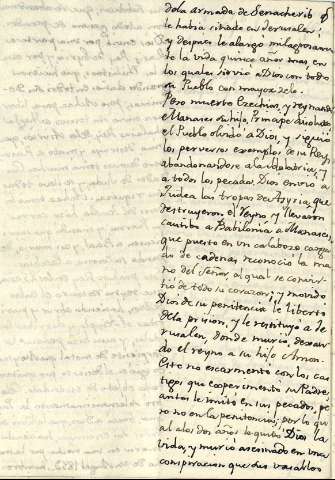 dola armada de Senacherib q
le havia sitiado en Jerusalen:
y despues le alargo milagrosamen
te la vida quince años mas, en
los quales sirvio a Dios con todo
su Pueblo con mayor zelo.
Pero muerto Ezechias, y reynando
Manases su hijo, Principe disoluto
el Pueblo olvido a Dios, y siguio
los perversos exemplos de su Rey,
abandonandose a la idolatria, y
a todos los pecados, Dios envio a
Judea las tropas de Asyria, que
destruyeron el Reyno, y llevaron
cautibo a Babilonia a Manases,
que puesto en un calabozo carga
do de cadenas, reconoció la ma
no del Señor, al qual se convir
tió de todo su corazon; y movido
Dios de su penitencia, le libertó
de la prision, y le restituyó a Je
rusalen, donde murio, dexan
do el reyno a su hijo Amon.
Este no escarmentó con los cas
tigos que experimentó su Padre
antes le imitó en sus pecados, pe
ro no en la penitencia; por lo qu
al a los dos años le quitó Dios la
vida, y murió asesinado en una
conspiracion que sus vasallos